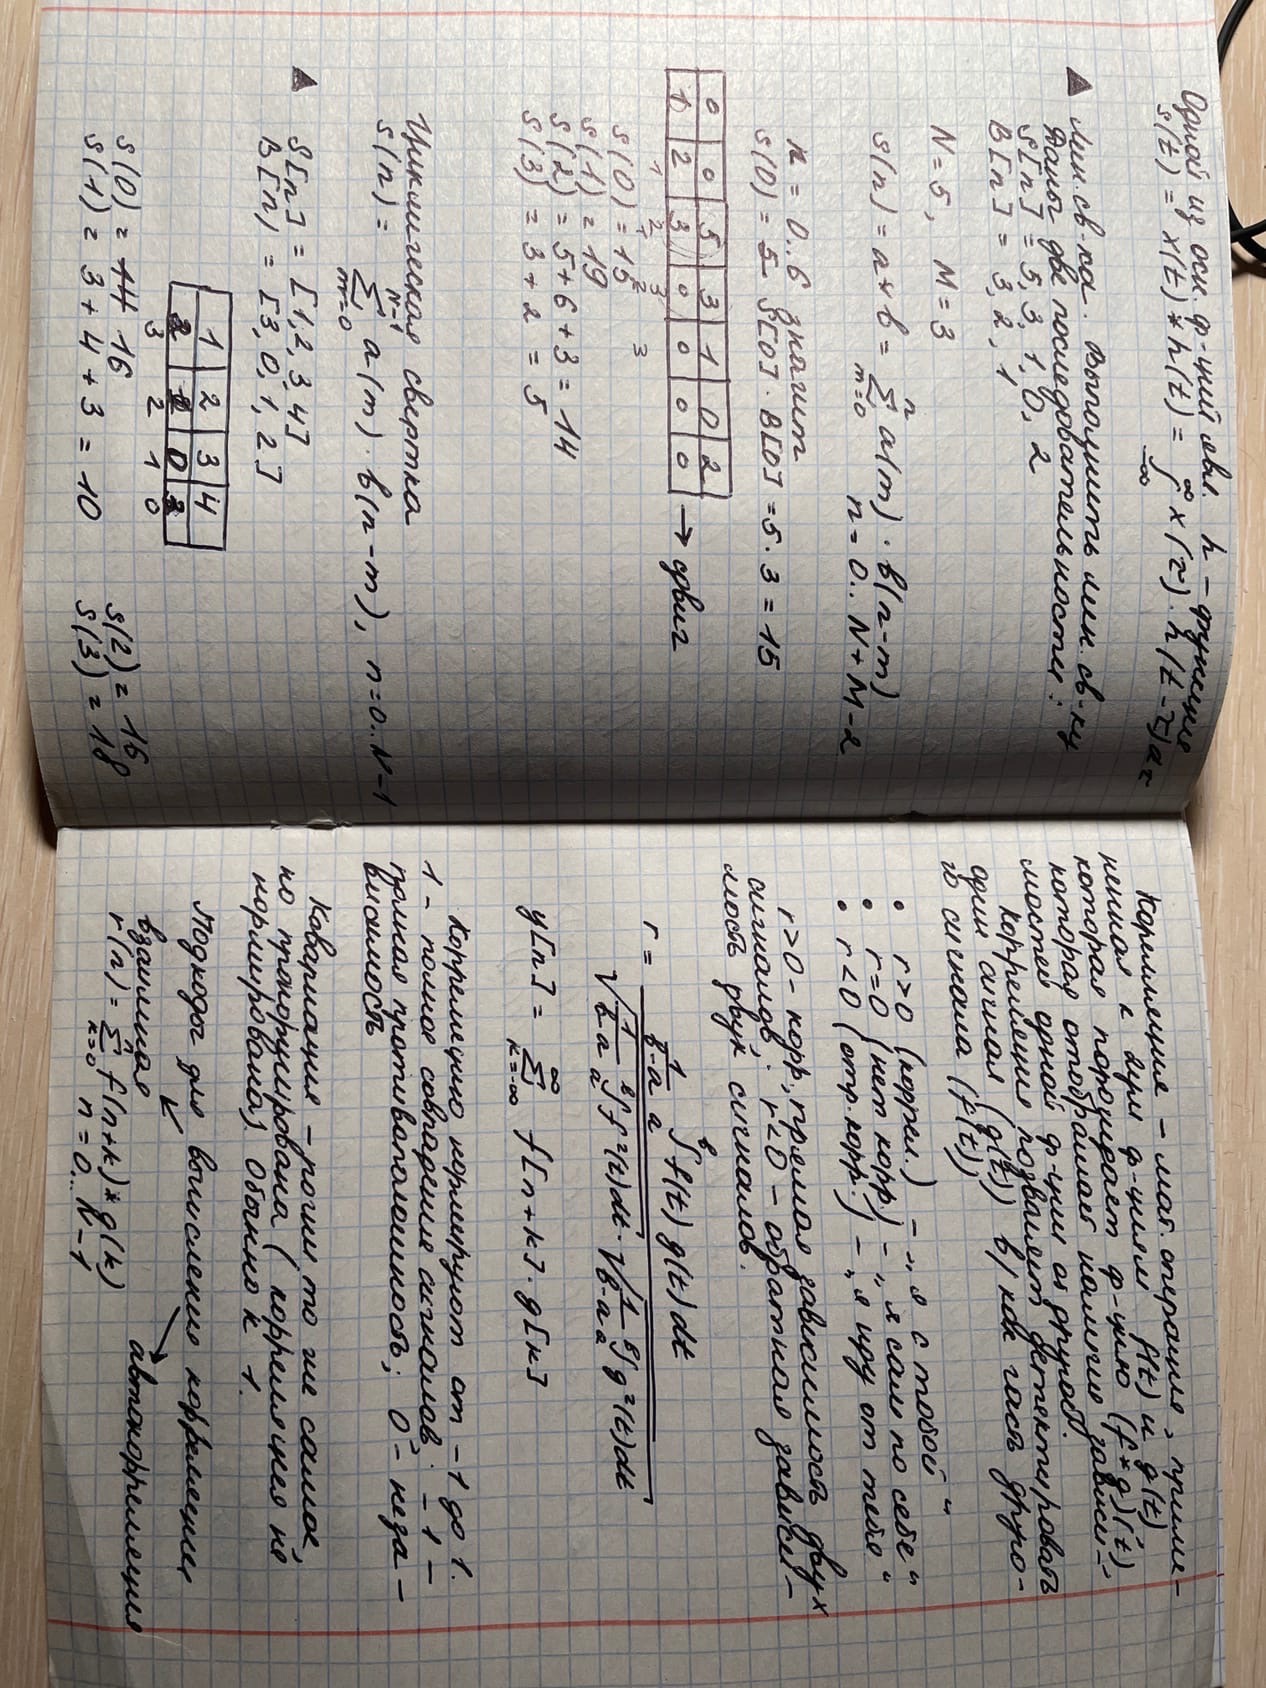 Одной из осн. ф-ций явл. h - функция
s(t) = x(t) * h(t) = ∫_{-∞}^{∞} x(τ) · h(t-τ)dτ
▲ Лин. св-ка. Выполнить лин. св-ку
Даны две последовательности:
S[n] = 5, 3, 1, 0, 2
B[n] = 3, 2, 1
N = 5, M = 3
s(n) = a * b = ∑_{m=0}^{n} a(m) · b(n-m)
n = 0.. N + M - 2
n = 0..6 значит
s(0) = S[0] · B[0] = 5 · 3 = 15
0 0 5 3 1 0 2
1 2 3 0 0 0 0 → сдвиг
1 2 3
1 2 3
s(0) = 15
s(1) = 19
s(2) = 5 + 6 + 3 = 14
s(3) = 3 + 2 = 5
Циклическая свертка
s(n) = ∑_{m=0}^{N-1} a(m) · b(n-m), n = 0.. N-1
▲ S[n] = [1, 2, 3, 4]
B[n) = [3, 0, 1, 2]
1 2 3 4
0
3 2 1 0
s(0) = 14 16
s(1) = 3 + 4 + 3 = 10
s(2) = 16
s(3) = 18
Корелляция - мат. операция, приме-
ненная к двум ф-циям f(t) и g(t),
которая порождает ф-цию (f * g)(t),
которая отображает наличие зависи-
мостей одной ф-ции от другой.
Корреляция позволяет детектировать
один сигнал (g(t)) в/как часть друго-
го сигнала (f(t))
• r > 0 (коррел.) - „я с тобой“
• r = 0 (нет корр.) - „я сам по себе“
• r < 0 (отр. корр.) - „я иду от тебя“
r > 0 - корр., прямая зависимость двух
сигналов; r < 0 - обратная зависи-
мость двух сигналов.
r = (1/(b-a) ∫_a^b f(t) g(t) dt) / (√(1/(b-a) ∫_a^b f²(t)dt) · √(1/(b-a) ∫_a^b g²(t)dt))
y[n] = ∑_{k=-∞}^{∞} f[n+k] · g[k]
Корреляцию нормируют от -1 до 1.
1 - полное совпадение сигналов; -1 -
полная противоположность; 0 - неза-
висимость
Ковариация - почти то же самое,
но пронормирована (корреляция не
нормирована). Обычно к 1.
Подходы для вычисления корреляции
взаимная
автокорреляция
r(n) = ∑_{k=0}^{n} f(n+k) * g(k)
n = 0... N-1